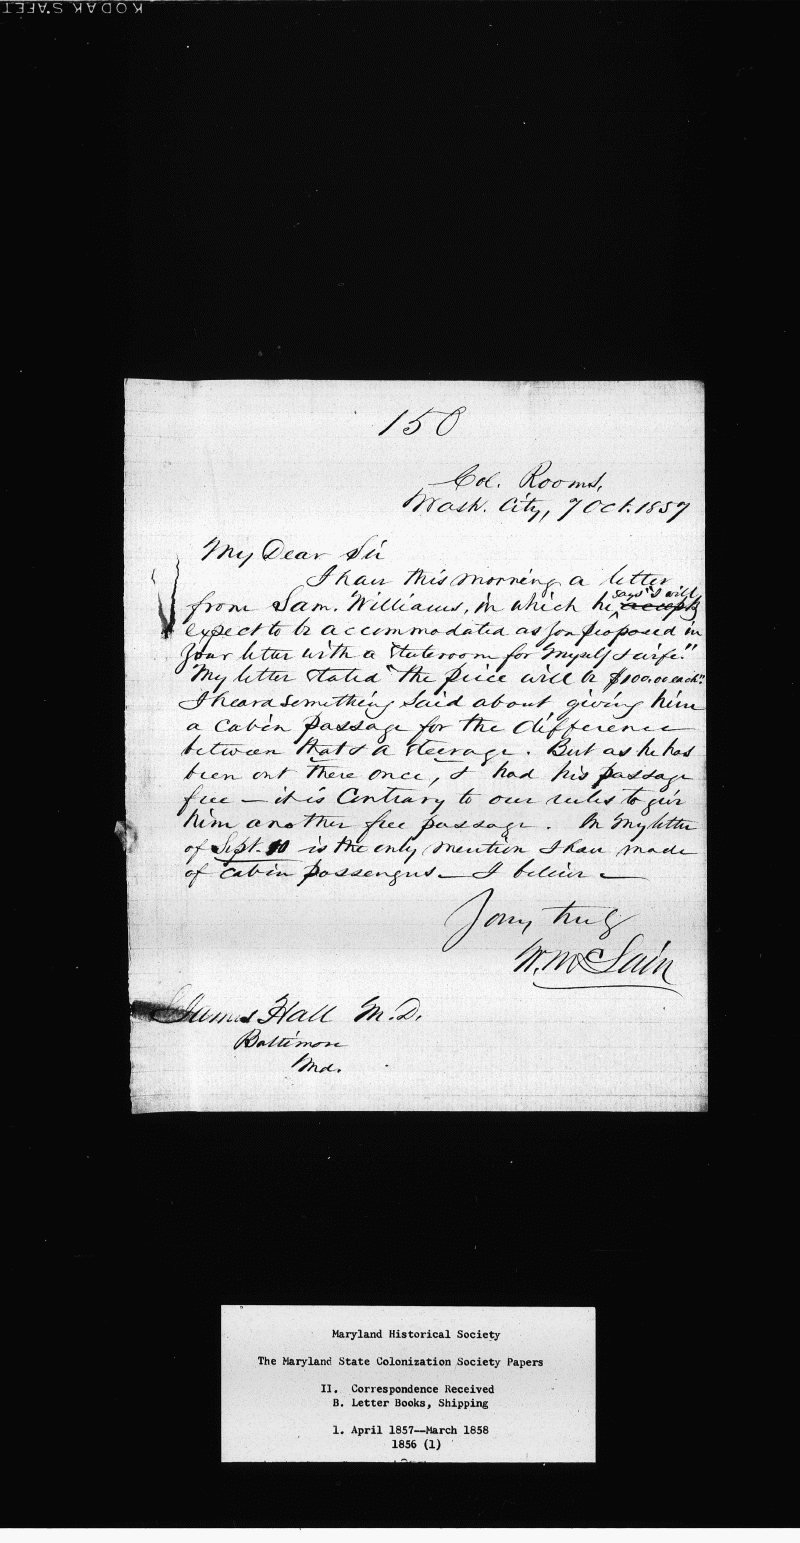 KODAK SAFET
150
Col. Rooms,
Wash. City, 7 Oct. 1857
My Dear Sir
I have this morning a letter
from Sam. Williams, in which he accepts says "I will
expect to be accommodated as you proposed in
your letter with a stateroom for myself & wife."
My letter stated "the price will be $100.00 each."
I heard something said about giving him
a cabin passage for the difference
between that & a steerage. But as he has
been out there once, & had his passage
free — it is Contrary to our rules to give
him another free passage. In my letter
of Sept. 10 is the only mention I have made
of cabin passengers — I believe —
Yours, truly
W. McLain
James Hall M.D.
Baltimore
Md.
Maryland Historical Society
The Maryland State Colonization Society Papers
II. Correspondence Received
B. Letter Books, Shipping
1. April 1857--March 1858
1856 (1)